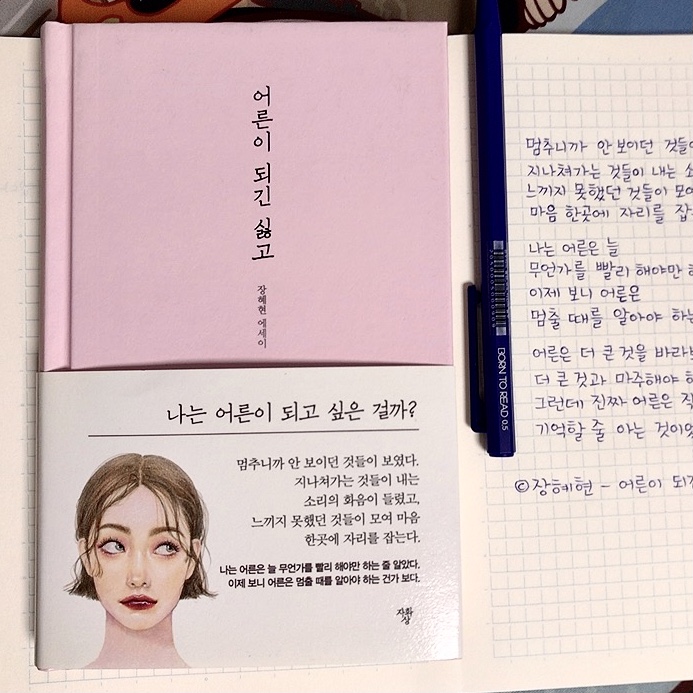 어른이 되긴 싫고
장혜현 에세이
나는 어른이 되고 싶은 걸까?
멈추니까 안 보이던 것들이 보였다.
지나쳐가는 것들이 내는
소리의 화음이 들렸고,
느끼지 못했던 것들이 모여 마음
한곳에 자리를 잡는다.
나는 어른은 늘 무언가를 빨리 해야만 하는 줄 알았다.
이제 보니 어른은 멈출 때를 알아야 하는 건가 보다.
자화상
BORN TO READ 0.5
멈추니까 안 보이던 것들
지나쳐가는 것들이 내는
느끼지 못했던 것들이 모여
마음 한곳에 자리를
나는 어른은 늘
무언가를 빨리 해야만
이제 보니 어른은
멈출 때를 알아야
어른은 더 큰 것을
더 큰 것과 마주해야
그런데 진짜 어른은
기억할 줄 아는
ⓒ장혜현 - 어른이